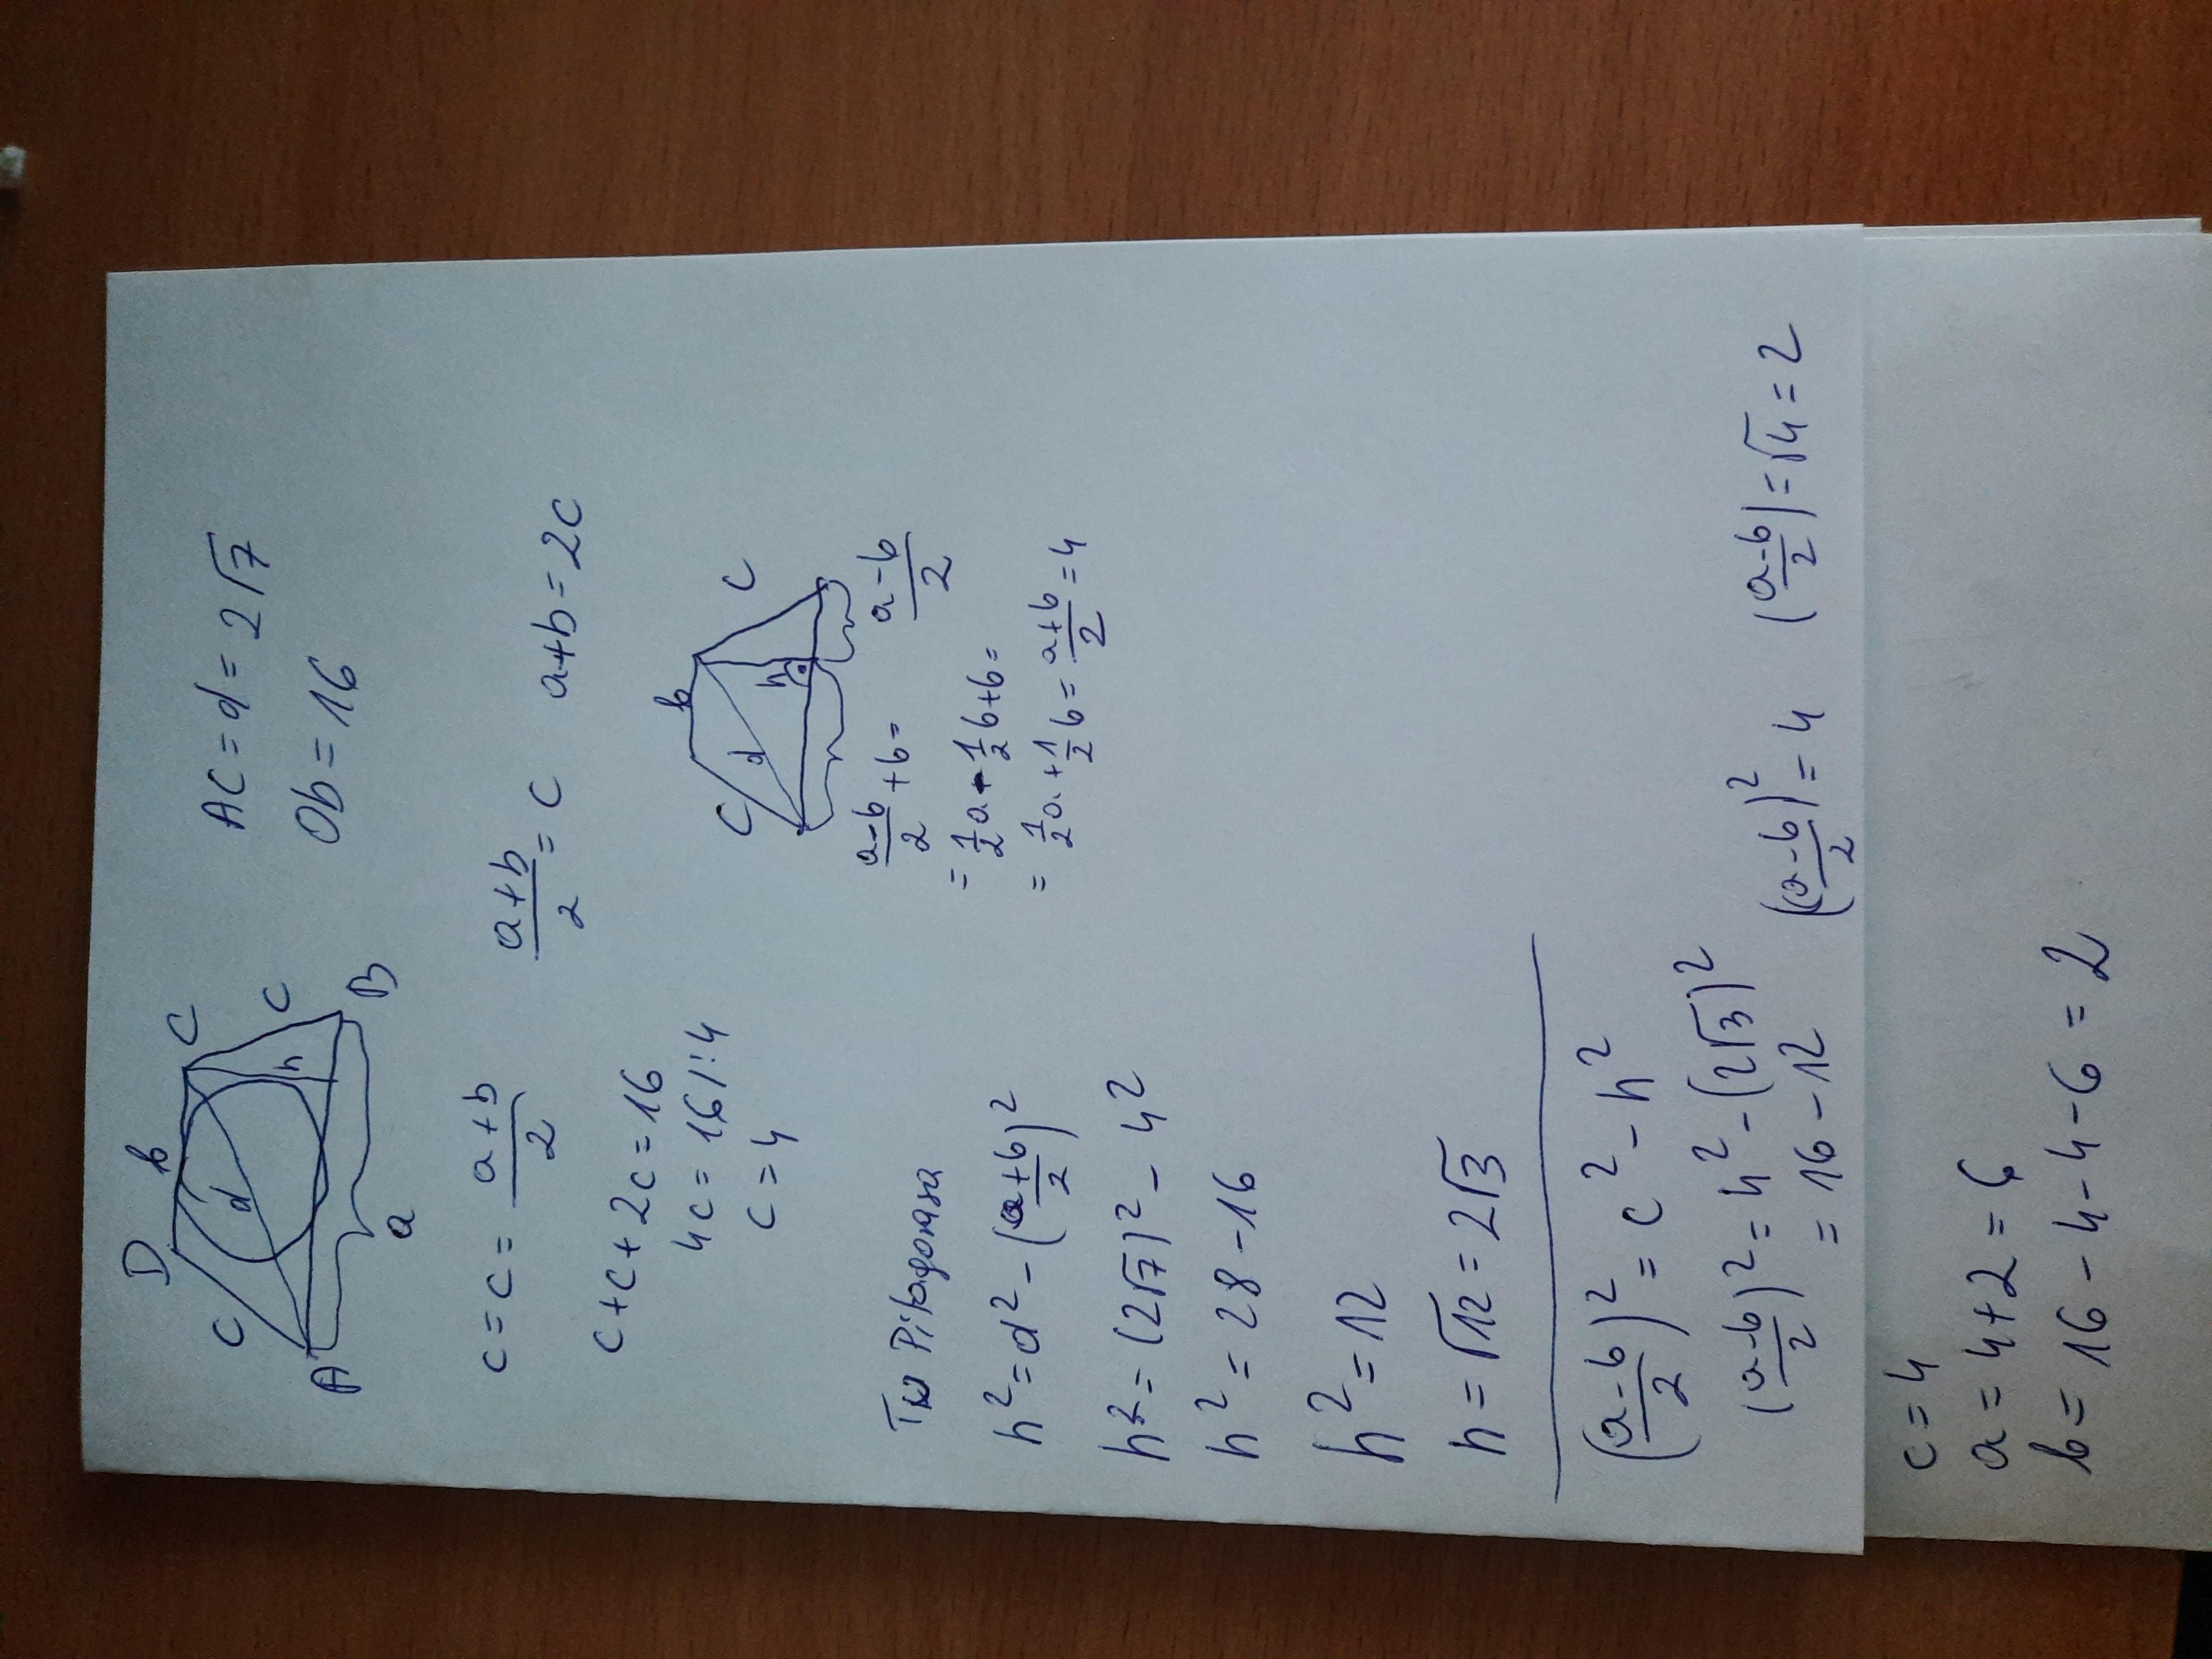 D b C
C d h C
A B
a
AC = d = 2√7
Ob = 16
c = c = (a+b)/2
(a+b)/2 = c a+b = 2c
c + c + 2c = 16
4c = 16 /:4
c = 4
b
C d h C
(a-b)/2 + b = (a-b)/2
= 1/2 a - 1/2 b + b =
= 1/2 a + 1/2 b = (a+b)/2 = 4
Tw Pitagorasa
h² = d² - ((a+b)/2)²
h² = (2√7)² - 4²
h² = 28 - 16
h² = 12
h = √12 = 2√3
((a-b)/2)² = c² - h²
((a-b)/2)² = 4² - (2√3)²
= 16 - 12
((a-b)/2)² = 4 ((a-b)/2) = √4 = 2
c = 4
a = 4 + 2 = 6
b = 16 - 4 - 4 - 6 = 2